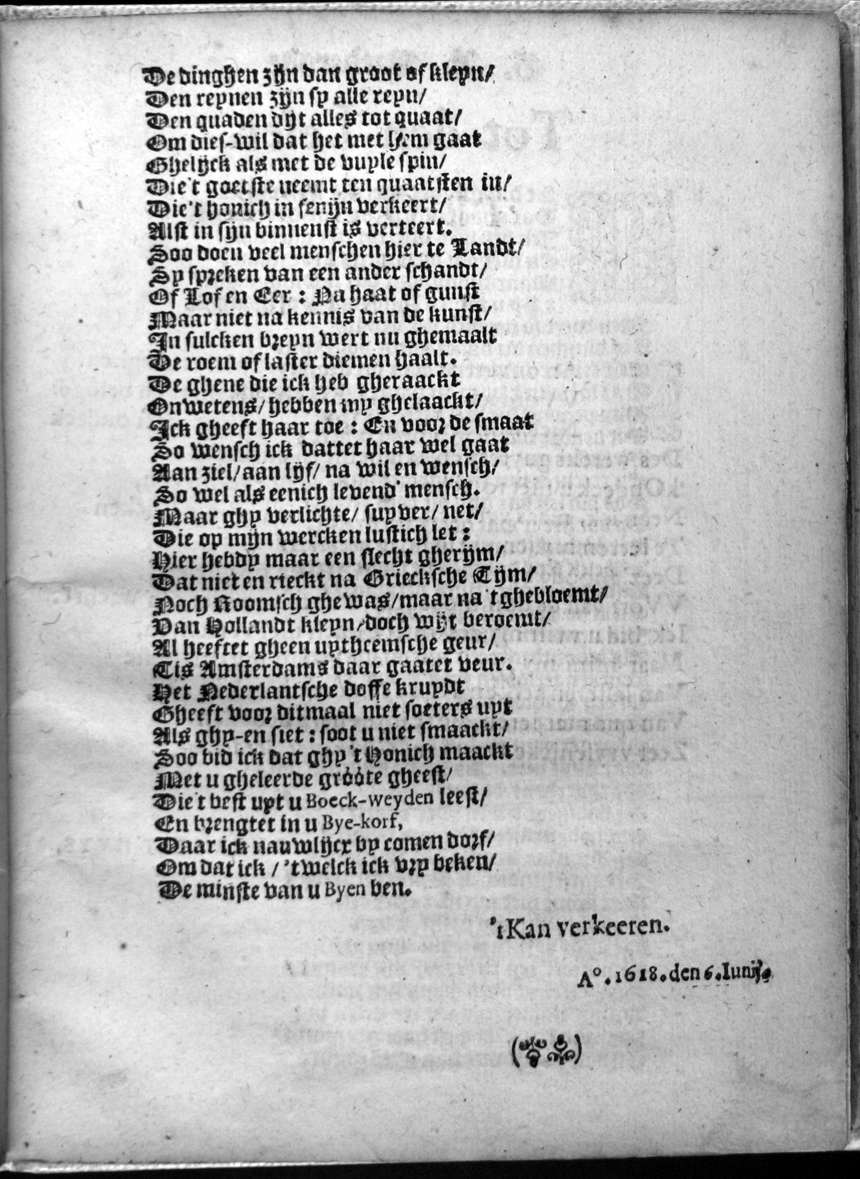 De dinghen zijn dan groot of kleyn/
Den reynen zijn sy alle reyn/
Den quaden dyt alles tot quaat/
Om dies-wil dat het met hem gaat
Ghelijck als met de vuyle spin/
Die't goetste neemt ten quaatsten in/
Die't honich in fenijn verkeert/
Alst in sijn binnenst is verteert.
Soo doen veel menschen hier te Landt/
Sy spreken van een ander schandt/
Of Lof en Eer : Na haat of gunst
Maar niet na kennis van de kunst/
In sulcken breyn wert nu ghemaalt
De roem of laster diemen haalt.
De ghene die ick heb gheraackt
Onwetens/ hebben my ghelaackt/
Ick gheeft haar toe : En voor de smaat
So wensch ick dattet haar wel gaat
Aan ziel/ aan lijf/ na wil en wensch/
So wel als eenich levend' mensch.
Maar ghy verlichte/ suyver/ net/
Die op mijn wercken lustich let :
Hier hebdy maar een slecht gherijm/
Dat niet en rieckt na Griecksche Tijm/
Noch Roomsch ghewas/ maar na 't ghebloemt/
Van Hollandt kleyn/ doch wijt beroemt/
Al heeftet gheen uytheemsche geur/
Tis Amsterdams daar gaatet veur.
Het Nederlantsche doffe kruydt
Gheeft voor ditmaal niet soeters uyt
Als ghy-en siet : soot u niet smaackt/
Soo bid ick dat ghy 't Honich maackt
Met u gheleerde groote gheest/
Die't best uyt u Boeck-weyden leest/
En brengtet in u Bye-korf,
Daar ick nauwlijcx by comen dorf/
Om dat ick / 'twelck ick vry beken/
De minste van u Byen ben.
't Kan verkeeren.
Aº. 1618. den 6. Iunij.